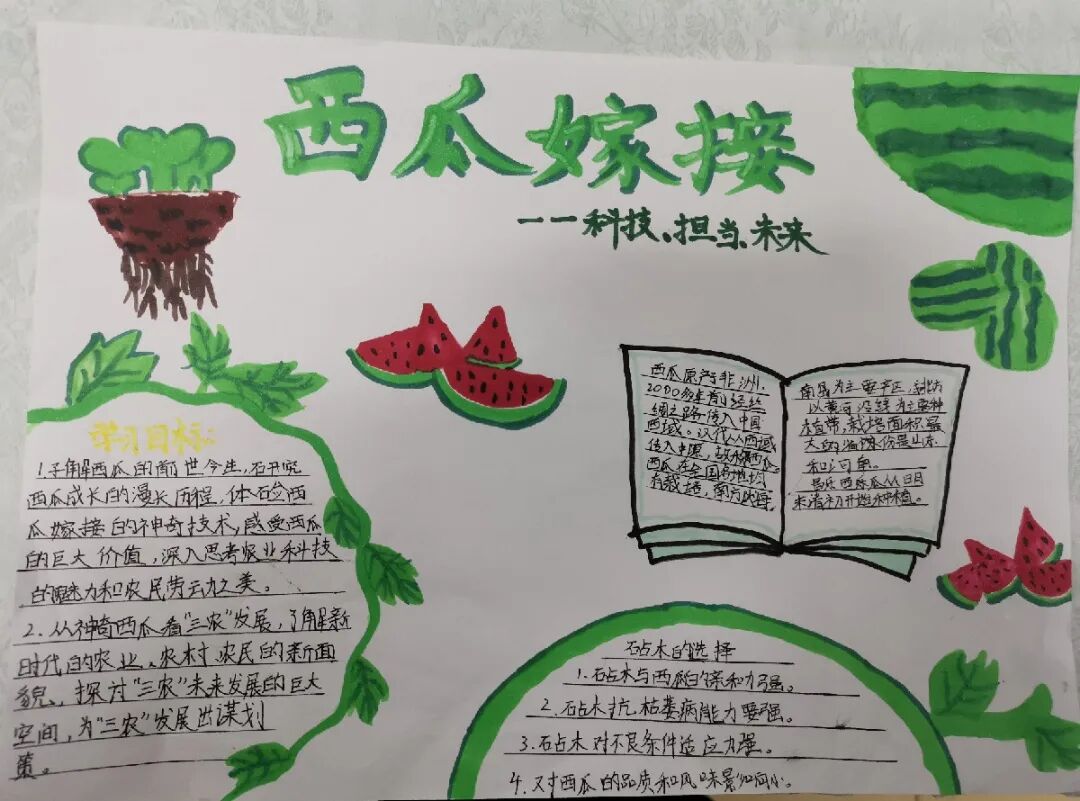 西瓜嫁接
——科技、担当、未来
学习目标:
1.了解西瓜的前世今生,研究
西瓜成长的漫长历程,体验西
瓜嫁接的神奇技术,感受西瓜
的巨大价值,深入思考农业科技
的魅力和农民劳动之美。
2.从神奇西瓜看“三农”发展,了解新
时代的农业、农村、农民的新面
貌,探讨“三农”未来发展的巨大
空间,为“三农”发展出谋划
策。
西瓜原产非洲.
2000多年前经丝
绸之路传入中国
西域。汉代从西域
传入中原,故称西瓜
西瓜在全国各地均
有栽培,南方以海
南岛为主要产区,北方
以黄河沿线为主要种
植带,栽培面积最
大的省份是山东
和河南。
昌乐西瓜从明
末清初开始种植。
砧木的选择
1.砧木与西瓜的亲和力强。
2.砧木抗枯萎病能力要强。
3.砧木对不良条件适应力强。
4.对西瓜的品质和风味影响小。